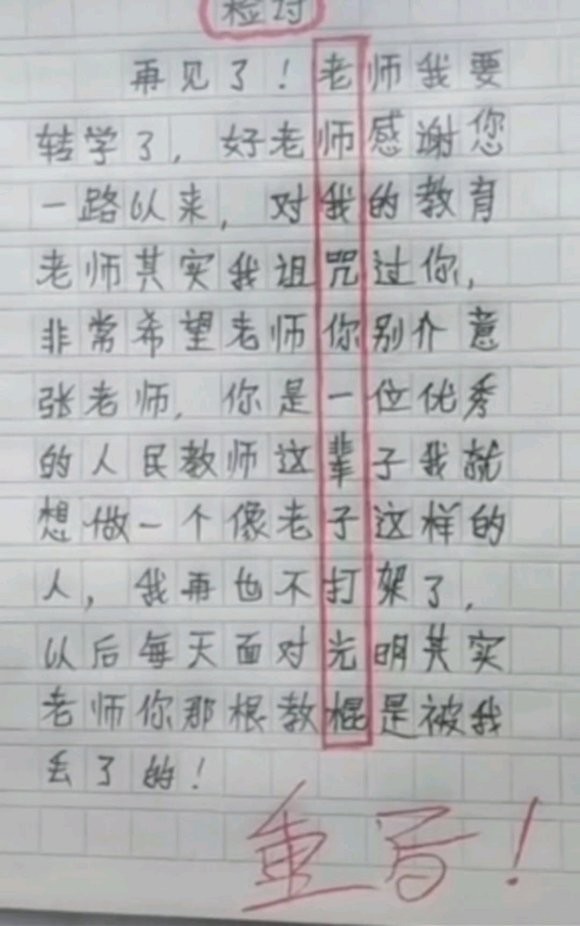 检讨
再见了！老师我要
转学了，好老师感谢您
一路以来，对我的教育
老师其实我诅咒过你，
非常希望老师你别介意
张老师，你是一位优秀
的人民教师这辈子我就
想做一个像老子这样的
人，我再也不打架了，
以后每天面对光明其实
老师你那根教棍是被我
丢了的！
重写！